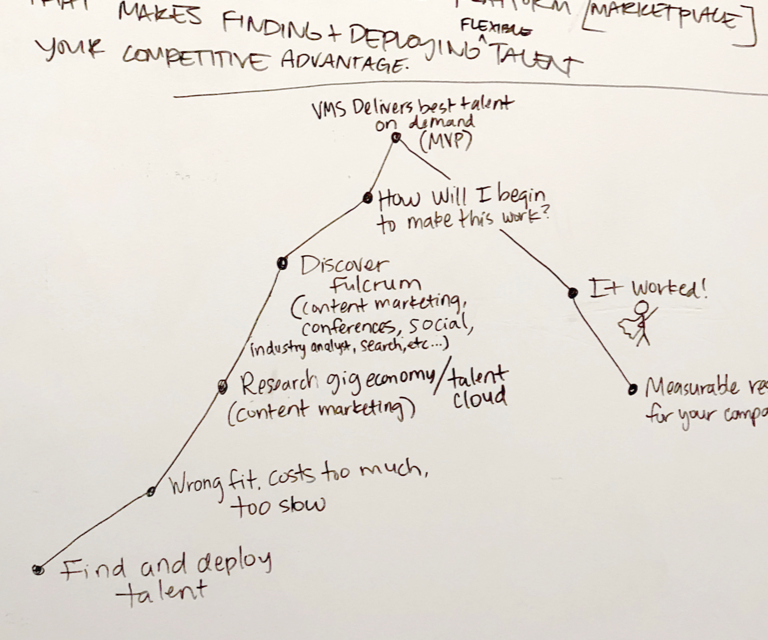 THAT MAKES FINDING + DEPLOYING FLEXIBLE TALENT
[MARKETPLACE]
YOUR COMPETITIVE ADVANTAGE.
VMS Delivers best talent
on demand
(MVP)
How will I begin
to make this work?
Discover
fulcrum
(content marketing,
conferences, social,
industry analyst, search, etc...)
It worked!
Research gig economy/talent
cloud
(content marketing)
Measurable
for your
Wrong fit. costs too much,
too slow
Find and deploy
talent